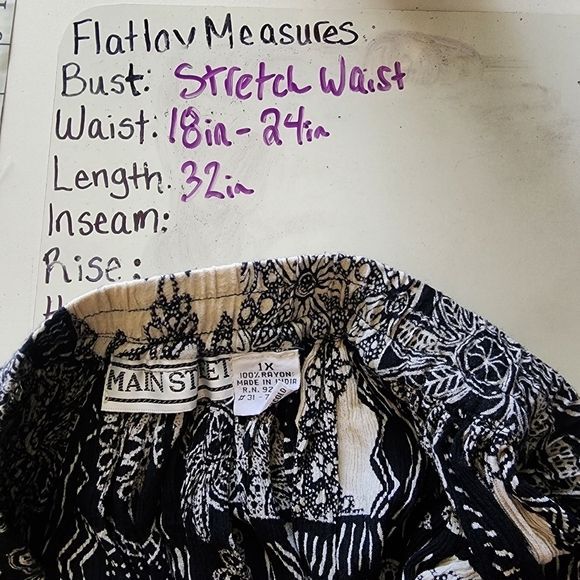 Flatlav Measures
Bust: Stretch Waist
Waist: 18in - 24in
Length: 32in
Inseam:
Rise:
MAIN ST
1X
100% RAYON
MADE IN INDIA
R.N. 92
# 31 - 7